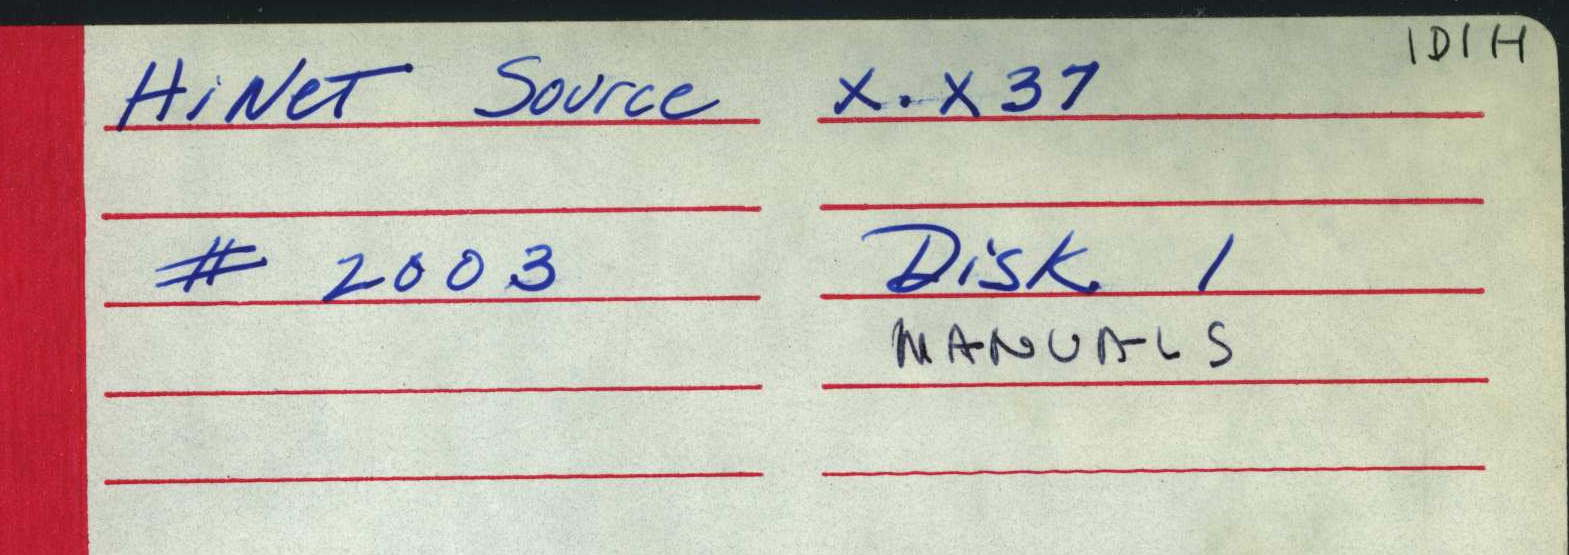 1D1H
HiNet Source X.X37
# 2003 Disk 1
MANUALS